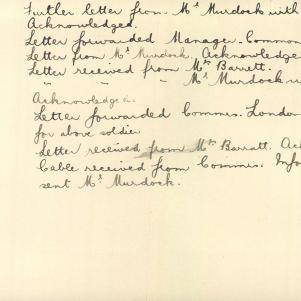 Further letter from Mr Murdock with
Acknowledged.
Letter forwarded Manager. Common
Letter from Mr Murdock. Acknowledge
Letter received from Mrs Barrett.
" - " Mr Murdock
Acknowledged.
Letter forwarded Commrs. London
for above soldier
Letter received from Mrs Barratt. Ack
Cable received from Commrs. Info
sent Mr Murdock.